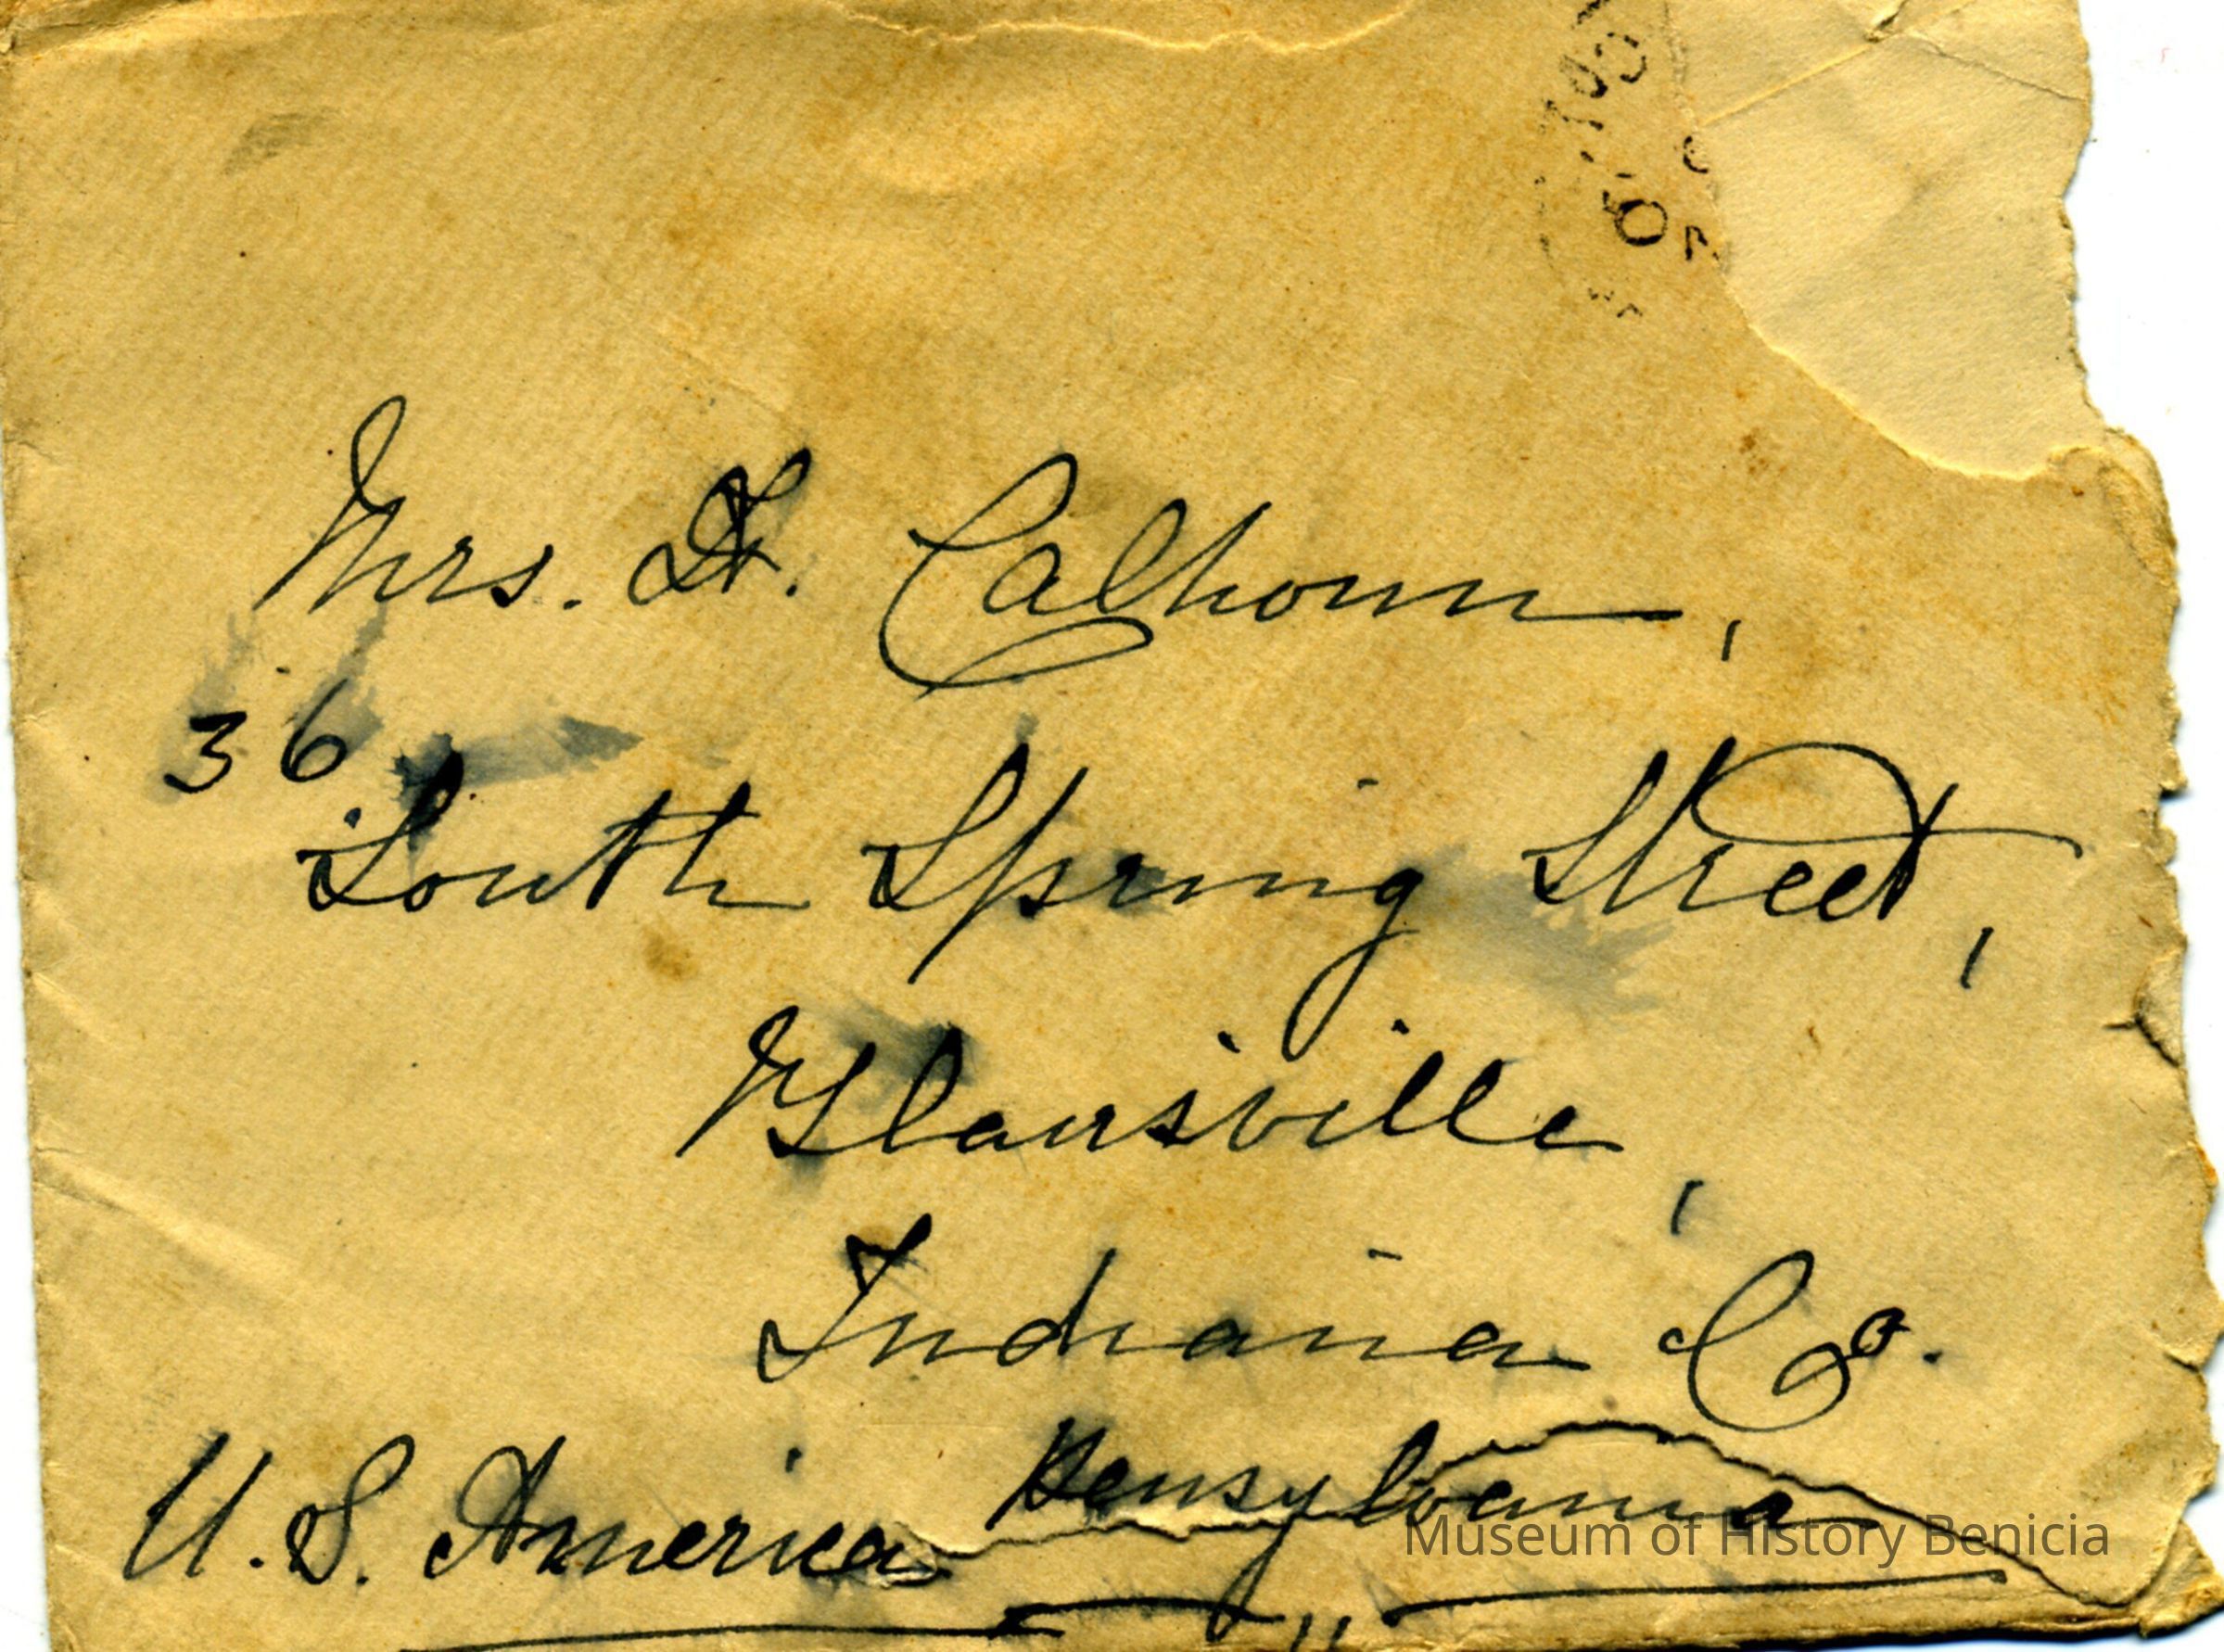 Mrs. H. Calhoun,
36
South Spring Street,
Blairsville,
Indiana Co.
Pensylvania
U. S. America
Museum of History Benicia